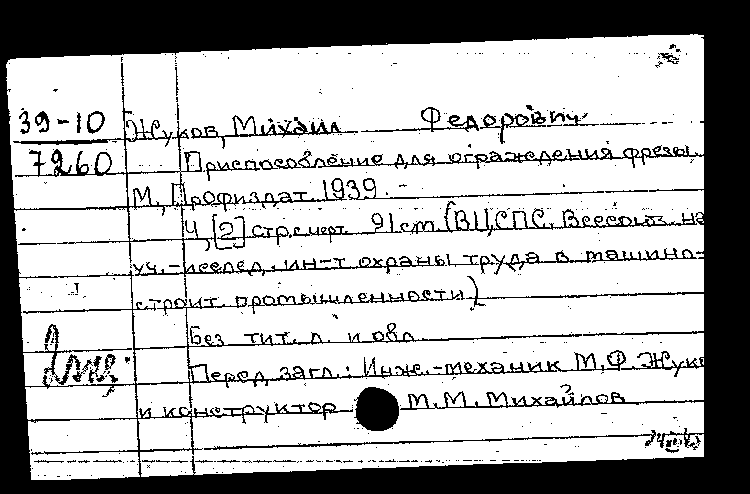 39-10
7260
Жуков, Михаил Федорович
Приспособление для ограждения фрезы.
М., Профиздат. 1939. -
4, [2] стр. с черт. 21 cm. (ВЦСПС. Всесоюз. на
уч.-исслед. ин-т охраны труда в машино-
строит. промышленности)
Без тит. л. и обл.
Перед загл.: Инж.-механик М.Ф. Жуко
и конструктор М.М. Михайлов